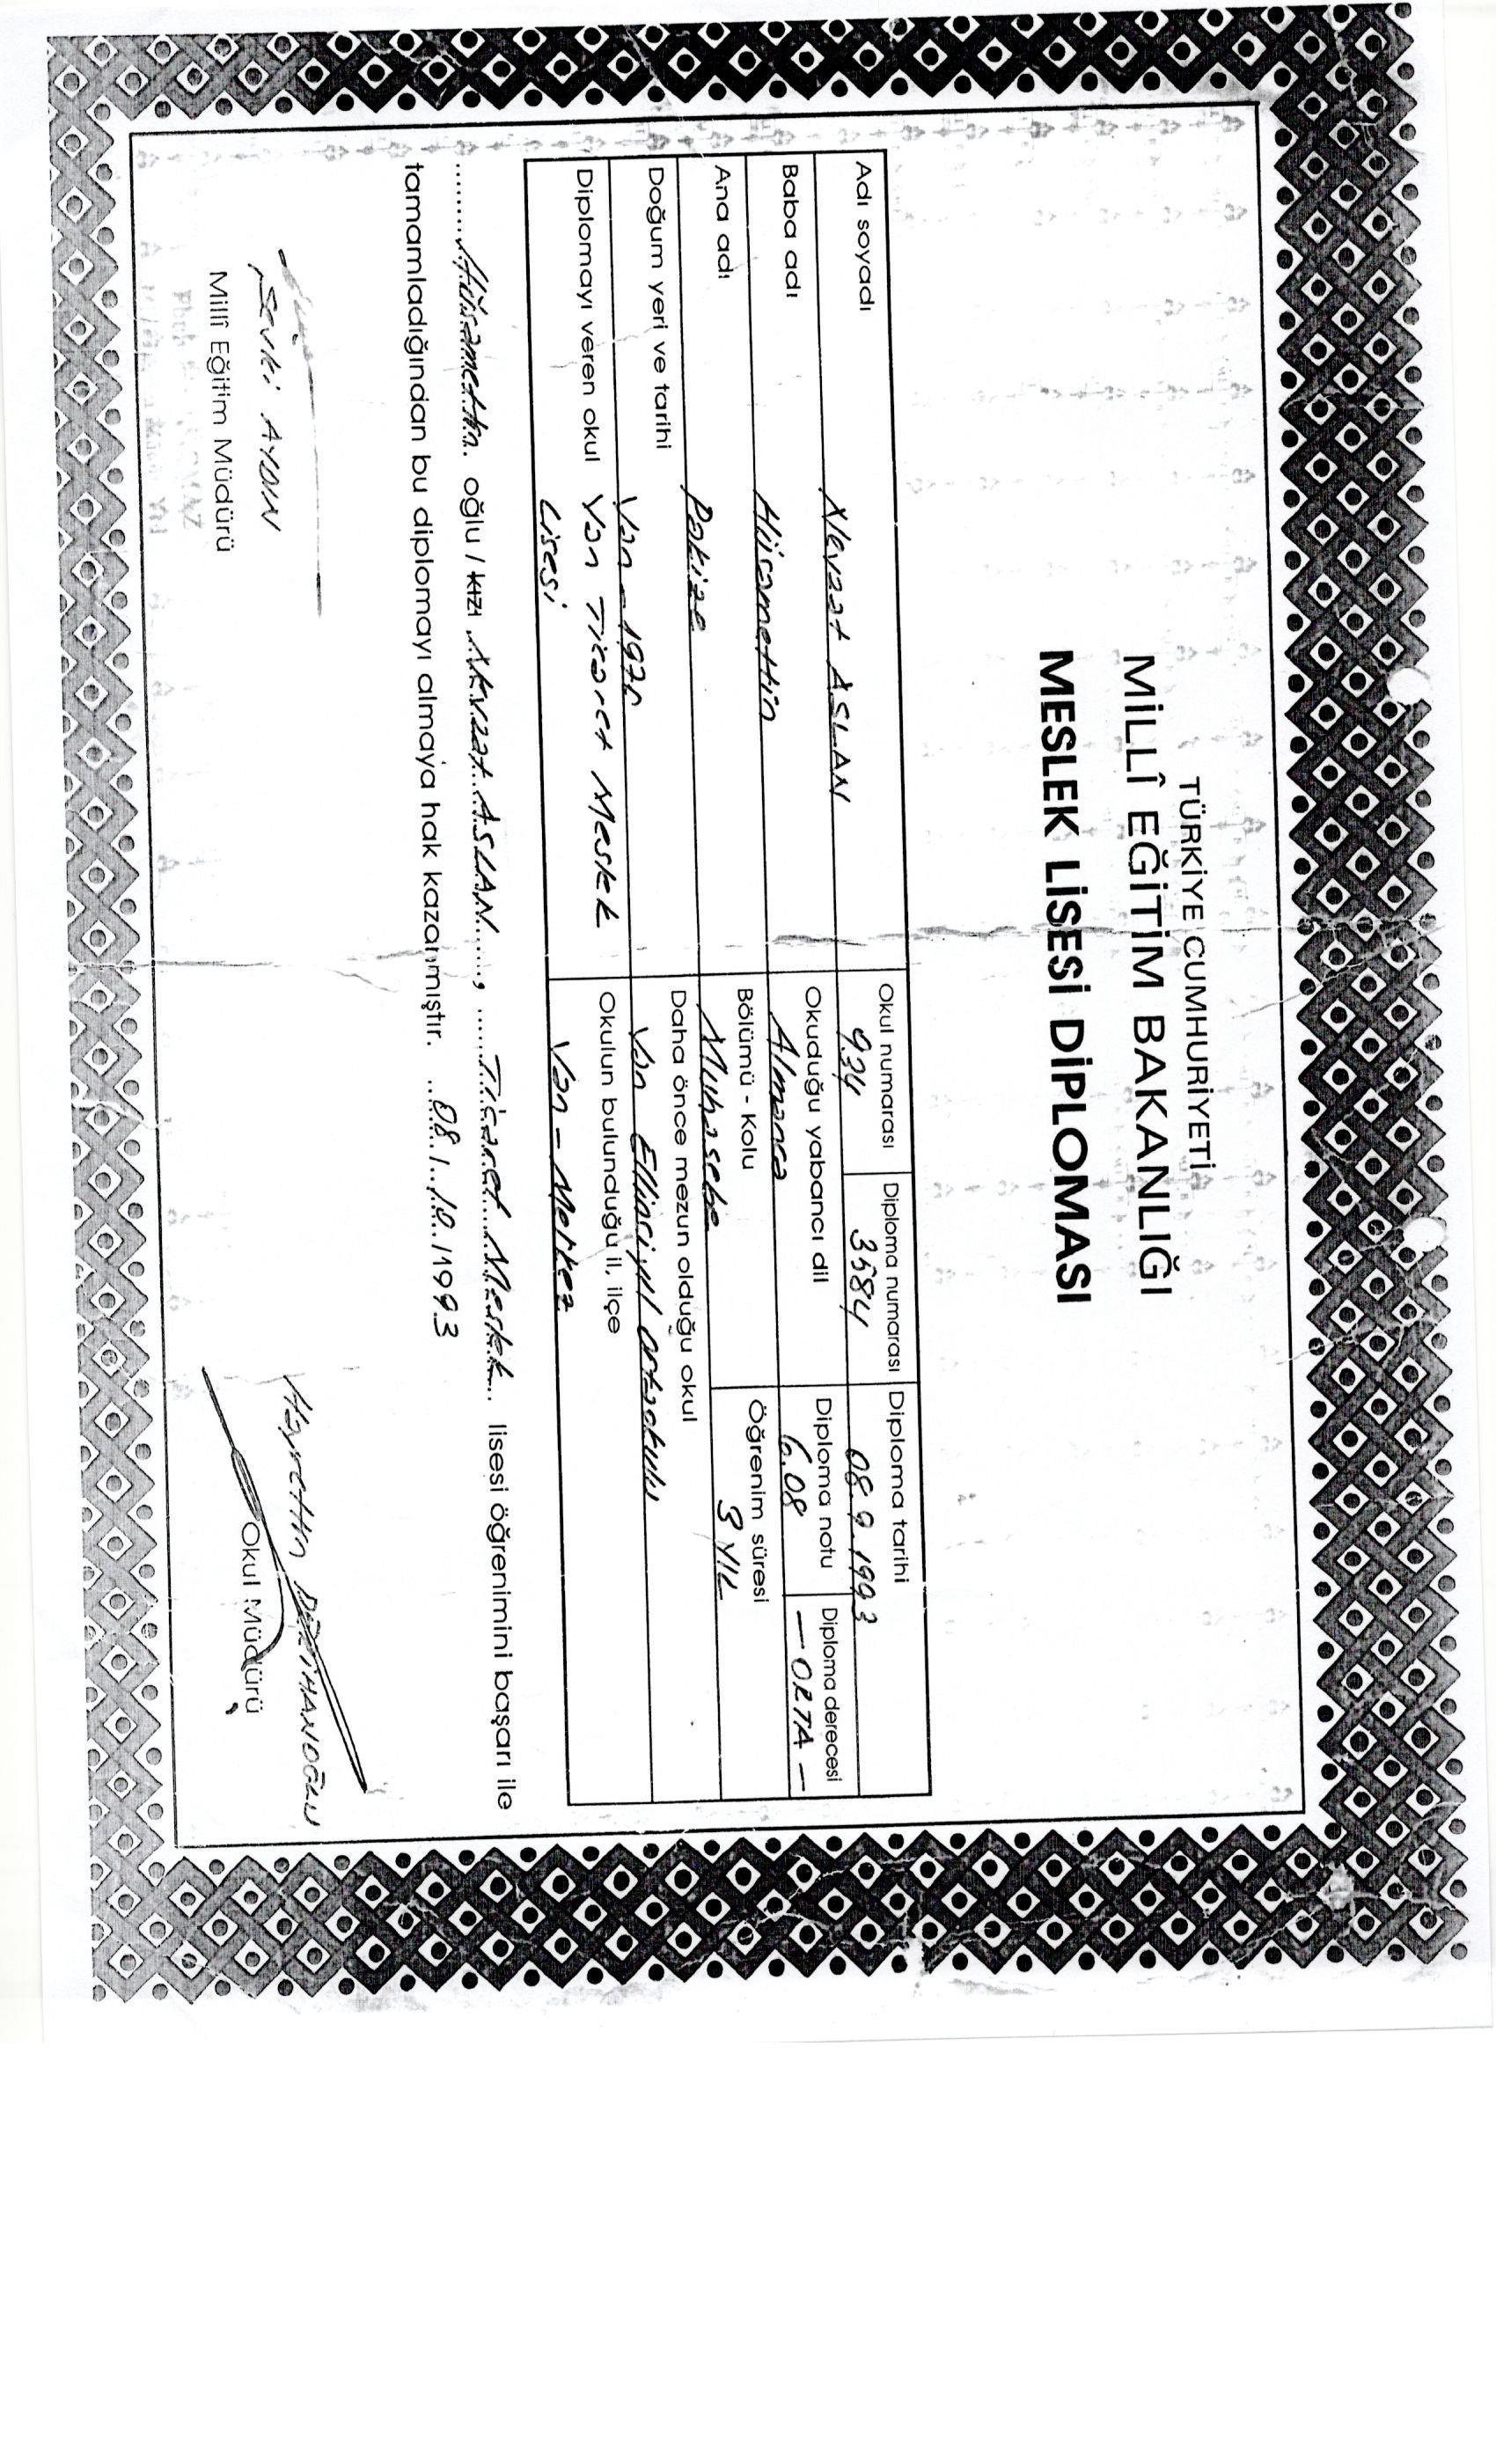 TÜRKİYE CUMHURİYETİ
MİLLÎ EĞİTİM BAKANLIĞI
MESLEK LİSESİ DİPLOMASI
Adı soyadı Nevzat ASLAN
Okul numarası 934
Diploma numarası 3584
Diploma tarihi 08.9.1993
Baba adı Hüsamettin
Okuduğu yabancı dil Almanca
Diploma notu 6.08
Diploma derecesi — ORTA —
Ana adı Pakize
Bölümü - Kolu Muhasebe
Öğrenim süresi 3 YIL
Doğum yeri ve tarihi Van -
Daha önce mezun olduğu okul Van Ellinciyıl ortaokulu
Diplomayı veren okul Van Ticaret Meslek Lisesi
Okulun bulunduğu il, ilçe Van - Merkez
........Hüsamettin. oğlu / kızı Nevzat ASLAN......, ......Ticaret Meslek.. lisesi öğrenimini başarı ile
tamamladığından bu diplomayı almaya hak kazanmıştır. ...08./..10./1993
Şevki AYDIN
Millî Eğitim Müdürü
Hayrettin
Okul Müdürü